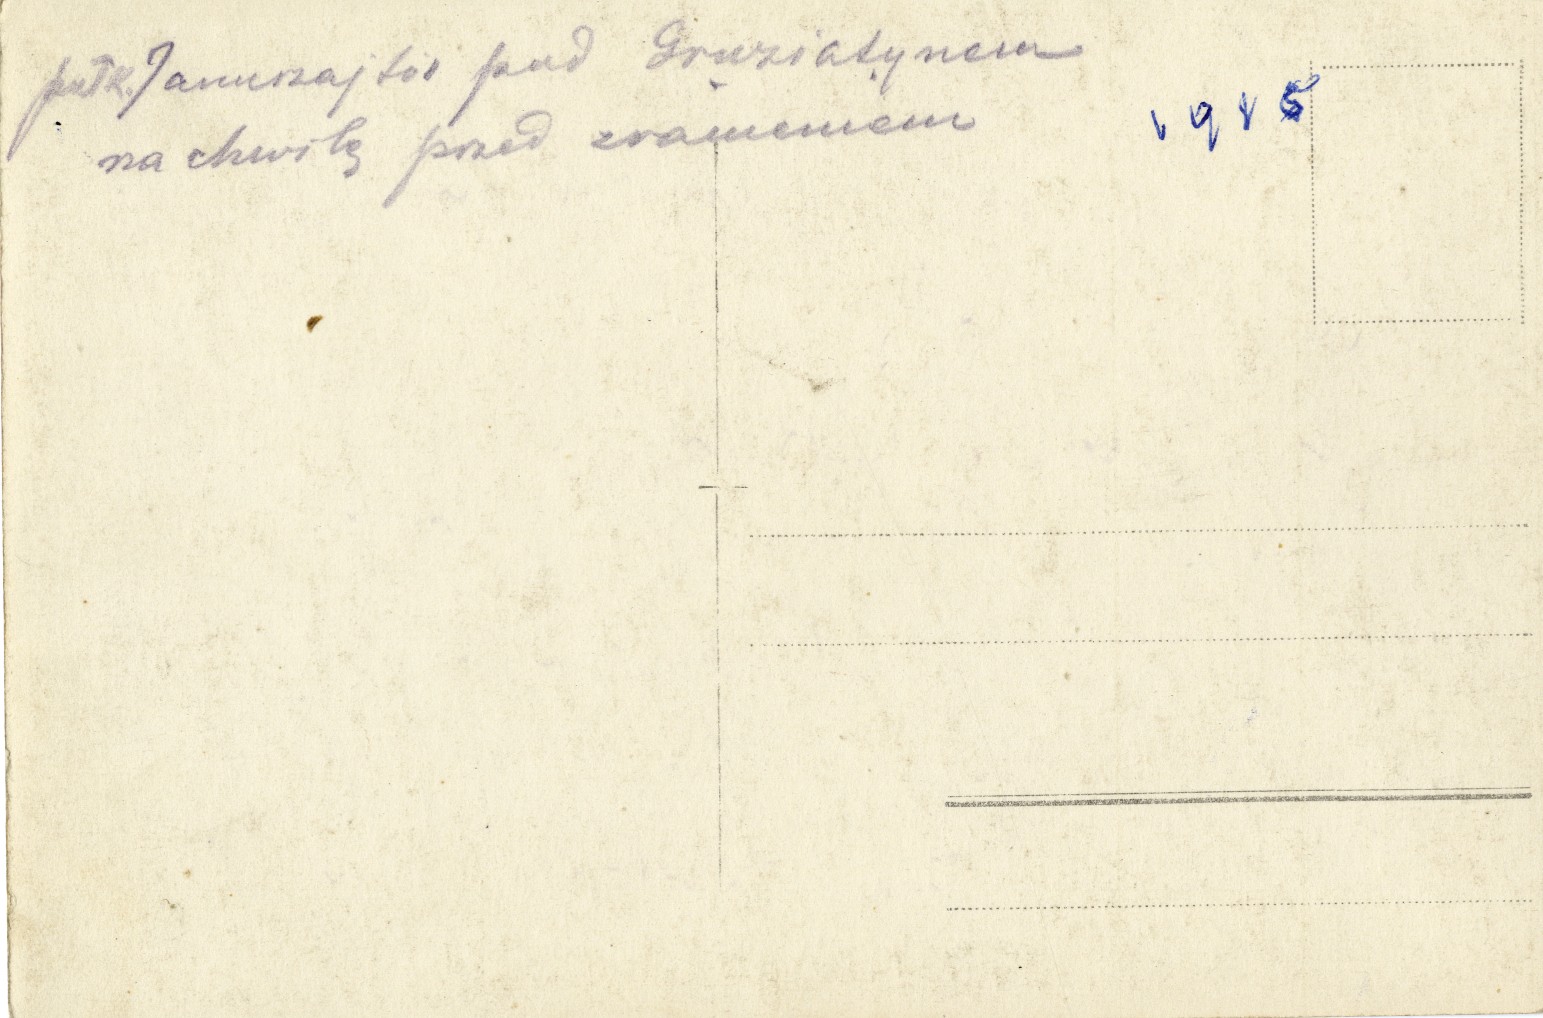 pułk. Januszajtis pod Gruziatynem
na chwilę przed zranieniem
1915